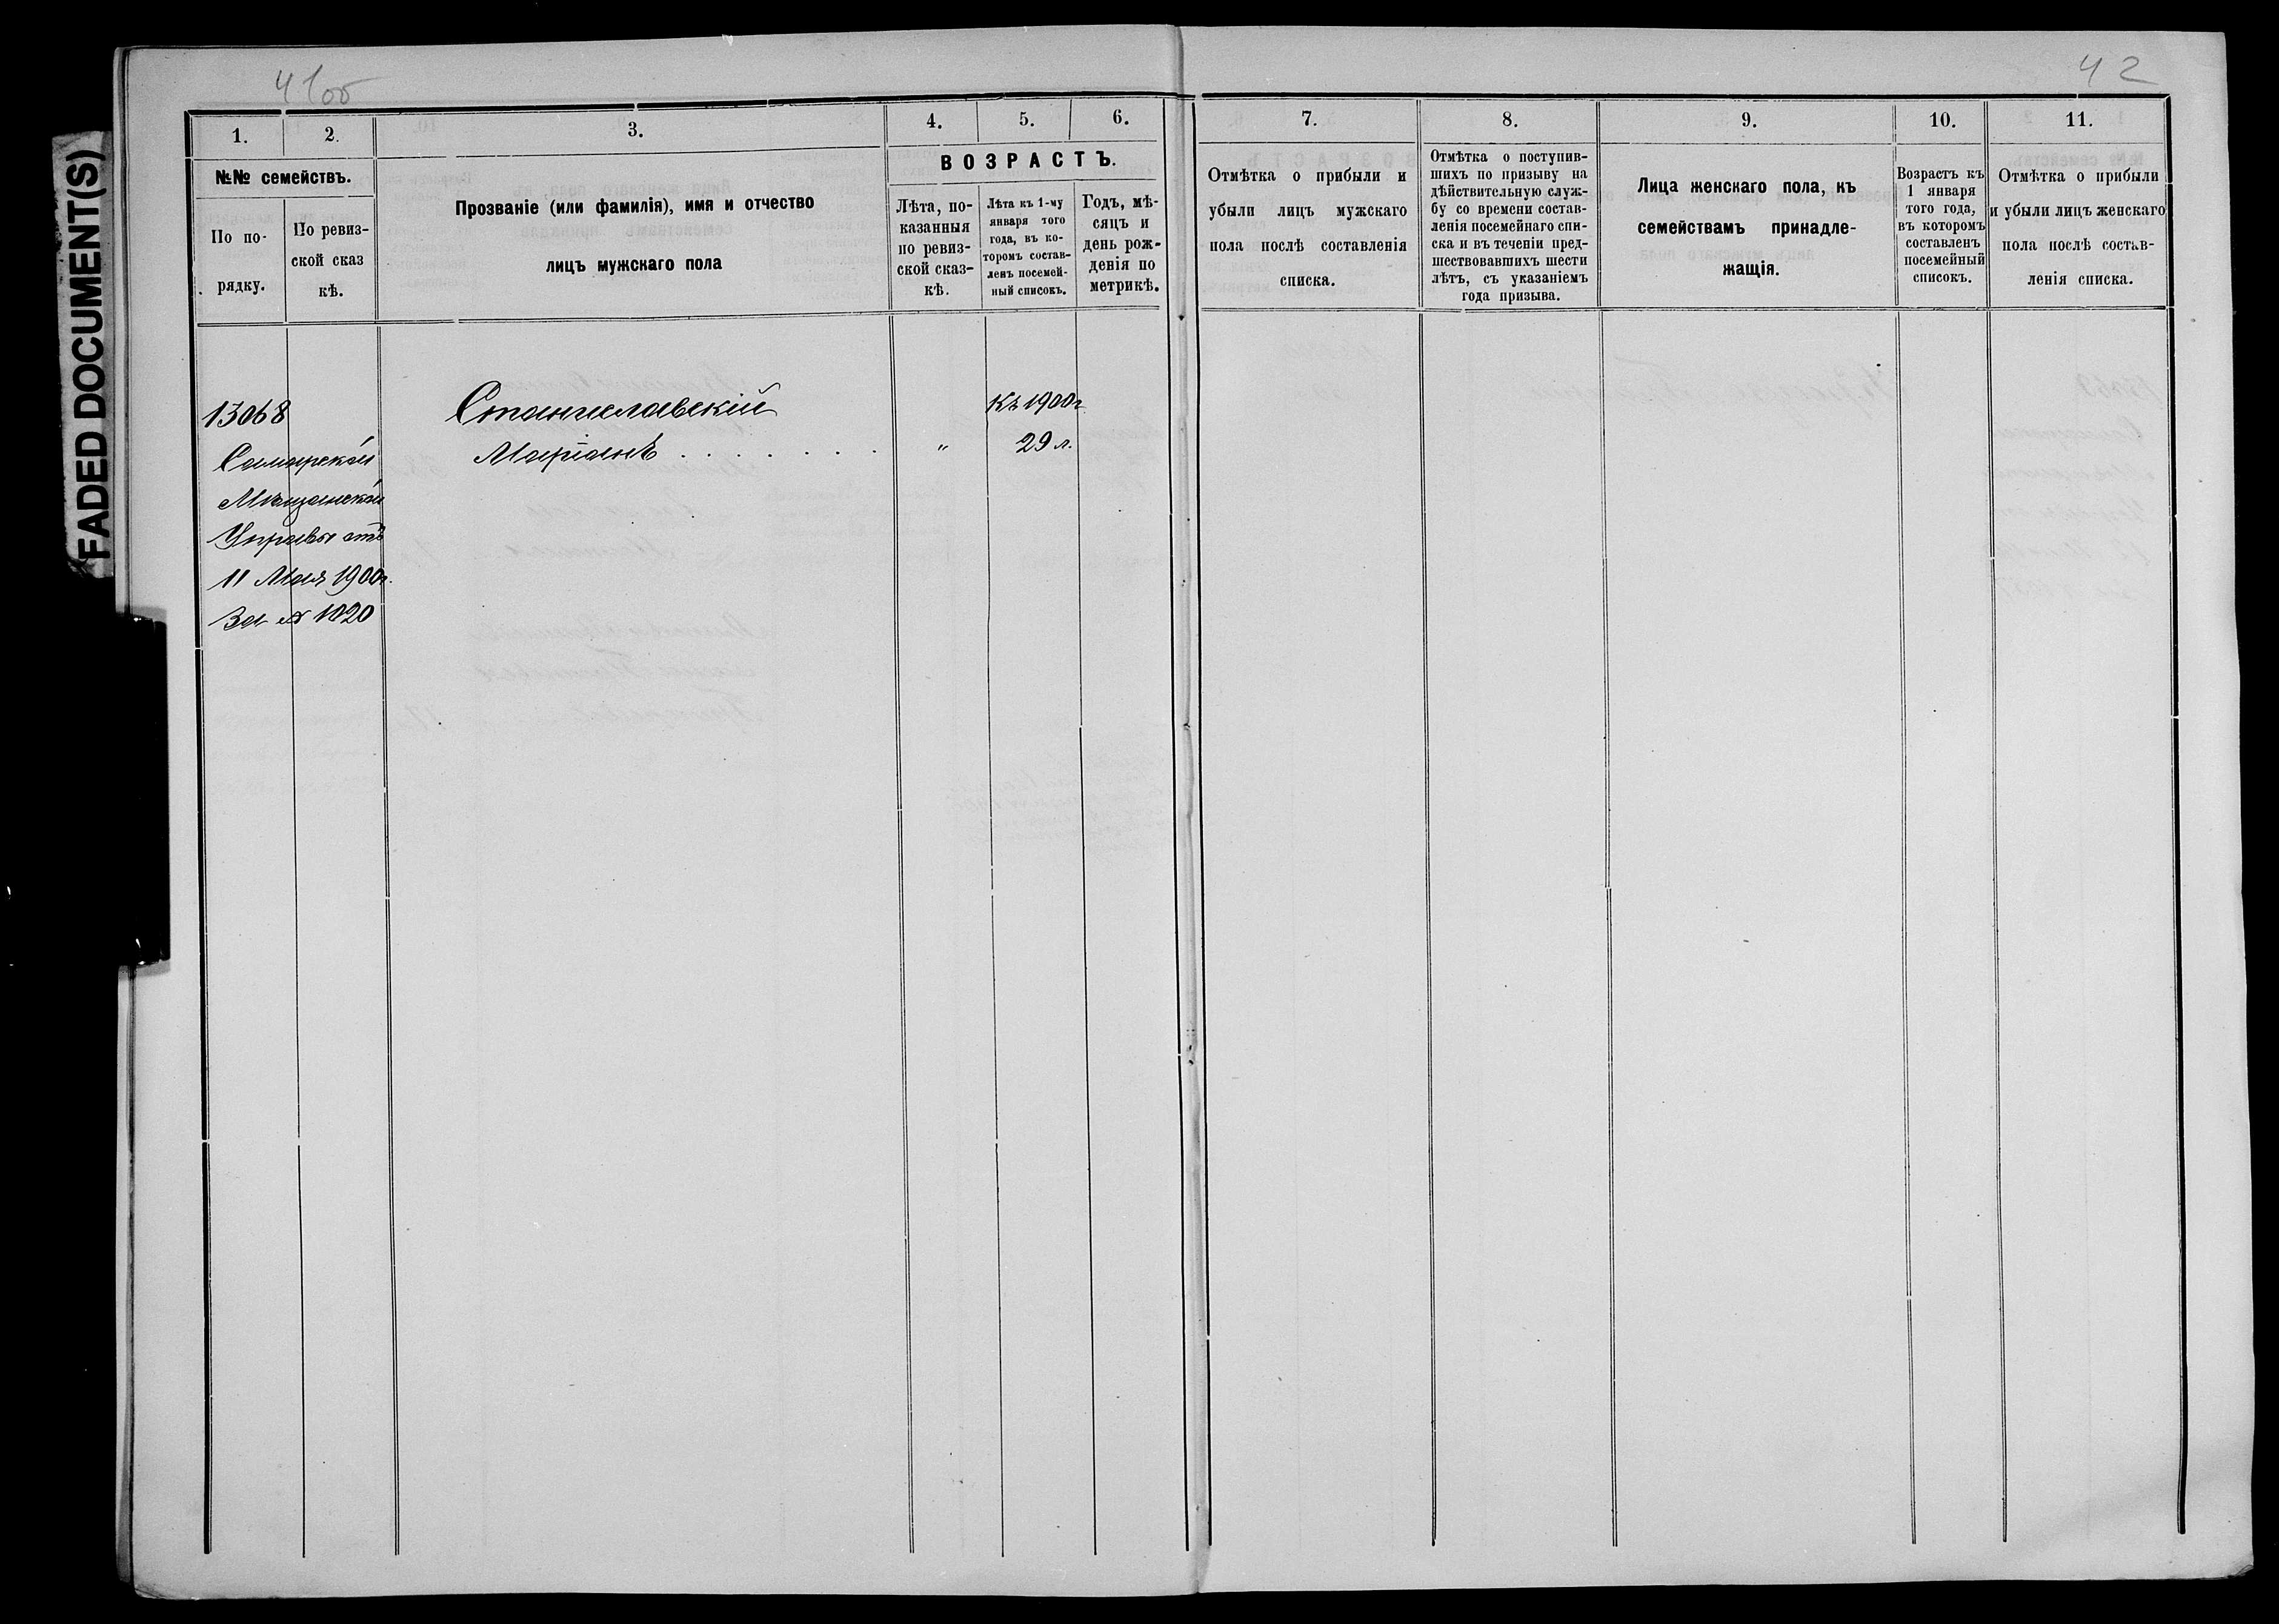 FADED DOCUMENT(S)
41об
42
1.
2.
3.
4.
5.
6.
7.
8.
9.
10.
11.
№№ семействъ.
По по-
рядку.
По ревиз-
ской сказ
кѣ.
Прозваніе (или фамилія), имя и отчество
лицъ мужскаго пола
ВОЗРАСТЪ.
Лѣта, по-
казанныя
по ревиз-
ской сказ-
кѣ.
Лѣта къ 1-му
января того
года, въ ко-
торомъ состав-
ленъ посемей-
ный списокъ.
Годъ, мѣ-
сяцъ и
день рож-
денія по
метрикѣ.
Отмѣтка о прибыли и
убыли лицъ мужскаго
пола послѣ составленія
списка.
Отмѣтка о поступив-
шихъ по призыву на
дѣйствительную служ-
бу со времени состав-
ленія посемейнаго спи-
ска и въ теченіи пред-
шествовавшихъ шести
лѣтъ, съ указаніемъ
года призыва.
Лица женскаго пола, къ
семействамъ принадле-
жащія.
Возрастъ къ
1 января
того года,
въ которомъ
составленъ
посемейный
списокъ.
Отмѣтка о прибыли
и убыли лицъ женскаго
пола послѣ состав-
ленія списка.
13068
Самарской
Мѣщанской
Управы отъ
11 Мая 1900г.
За № 1020
Станиславскій
Маріанъ . . . . . . . .
"
Къ 1900г
29 л.